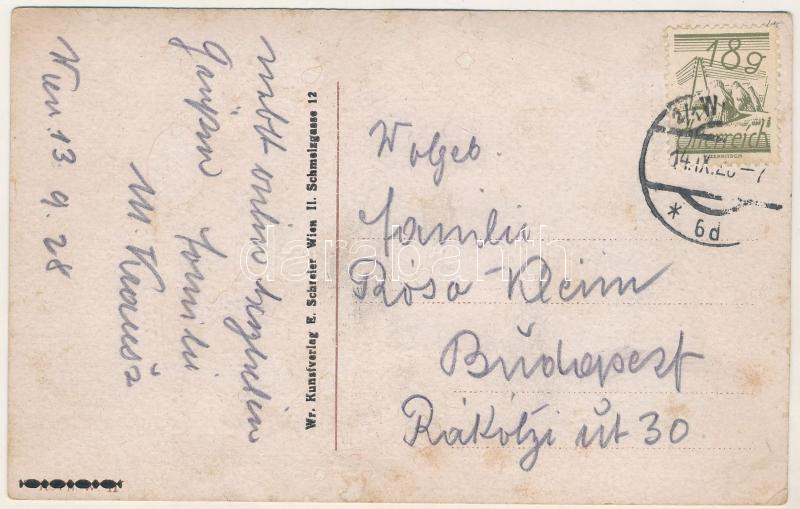 Wien 13. 9. 28
nebst
Familie
M. Krausz
Wr. Kunstverlag E. Schreier Wien II. Schmelzgasse 12
Wolgeb.
Familie
Rósa Klein
Budapest
Rákótzi út 30
18g
Österreich
14.IX.28-7
* 6d
darabanth